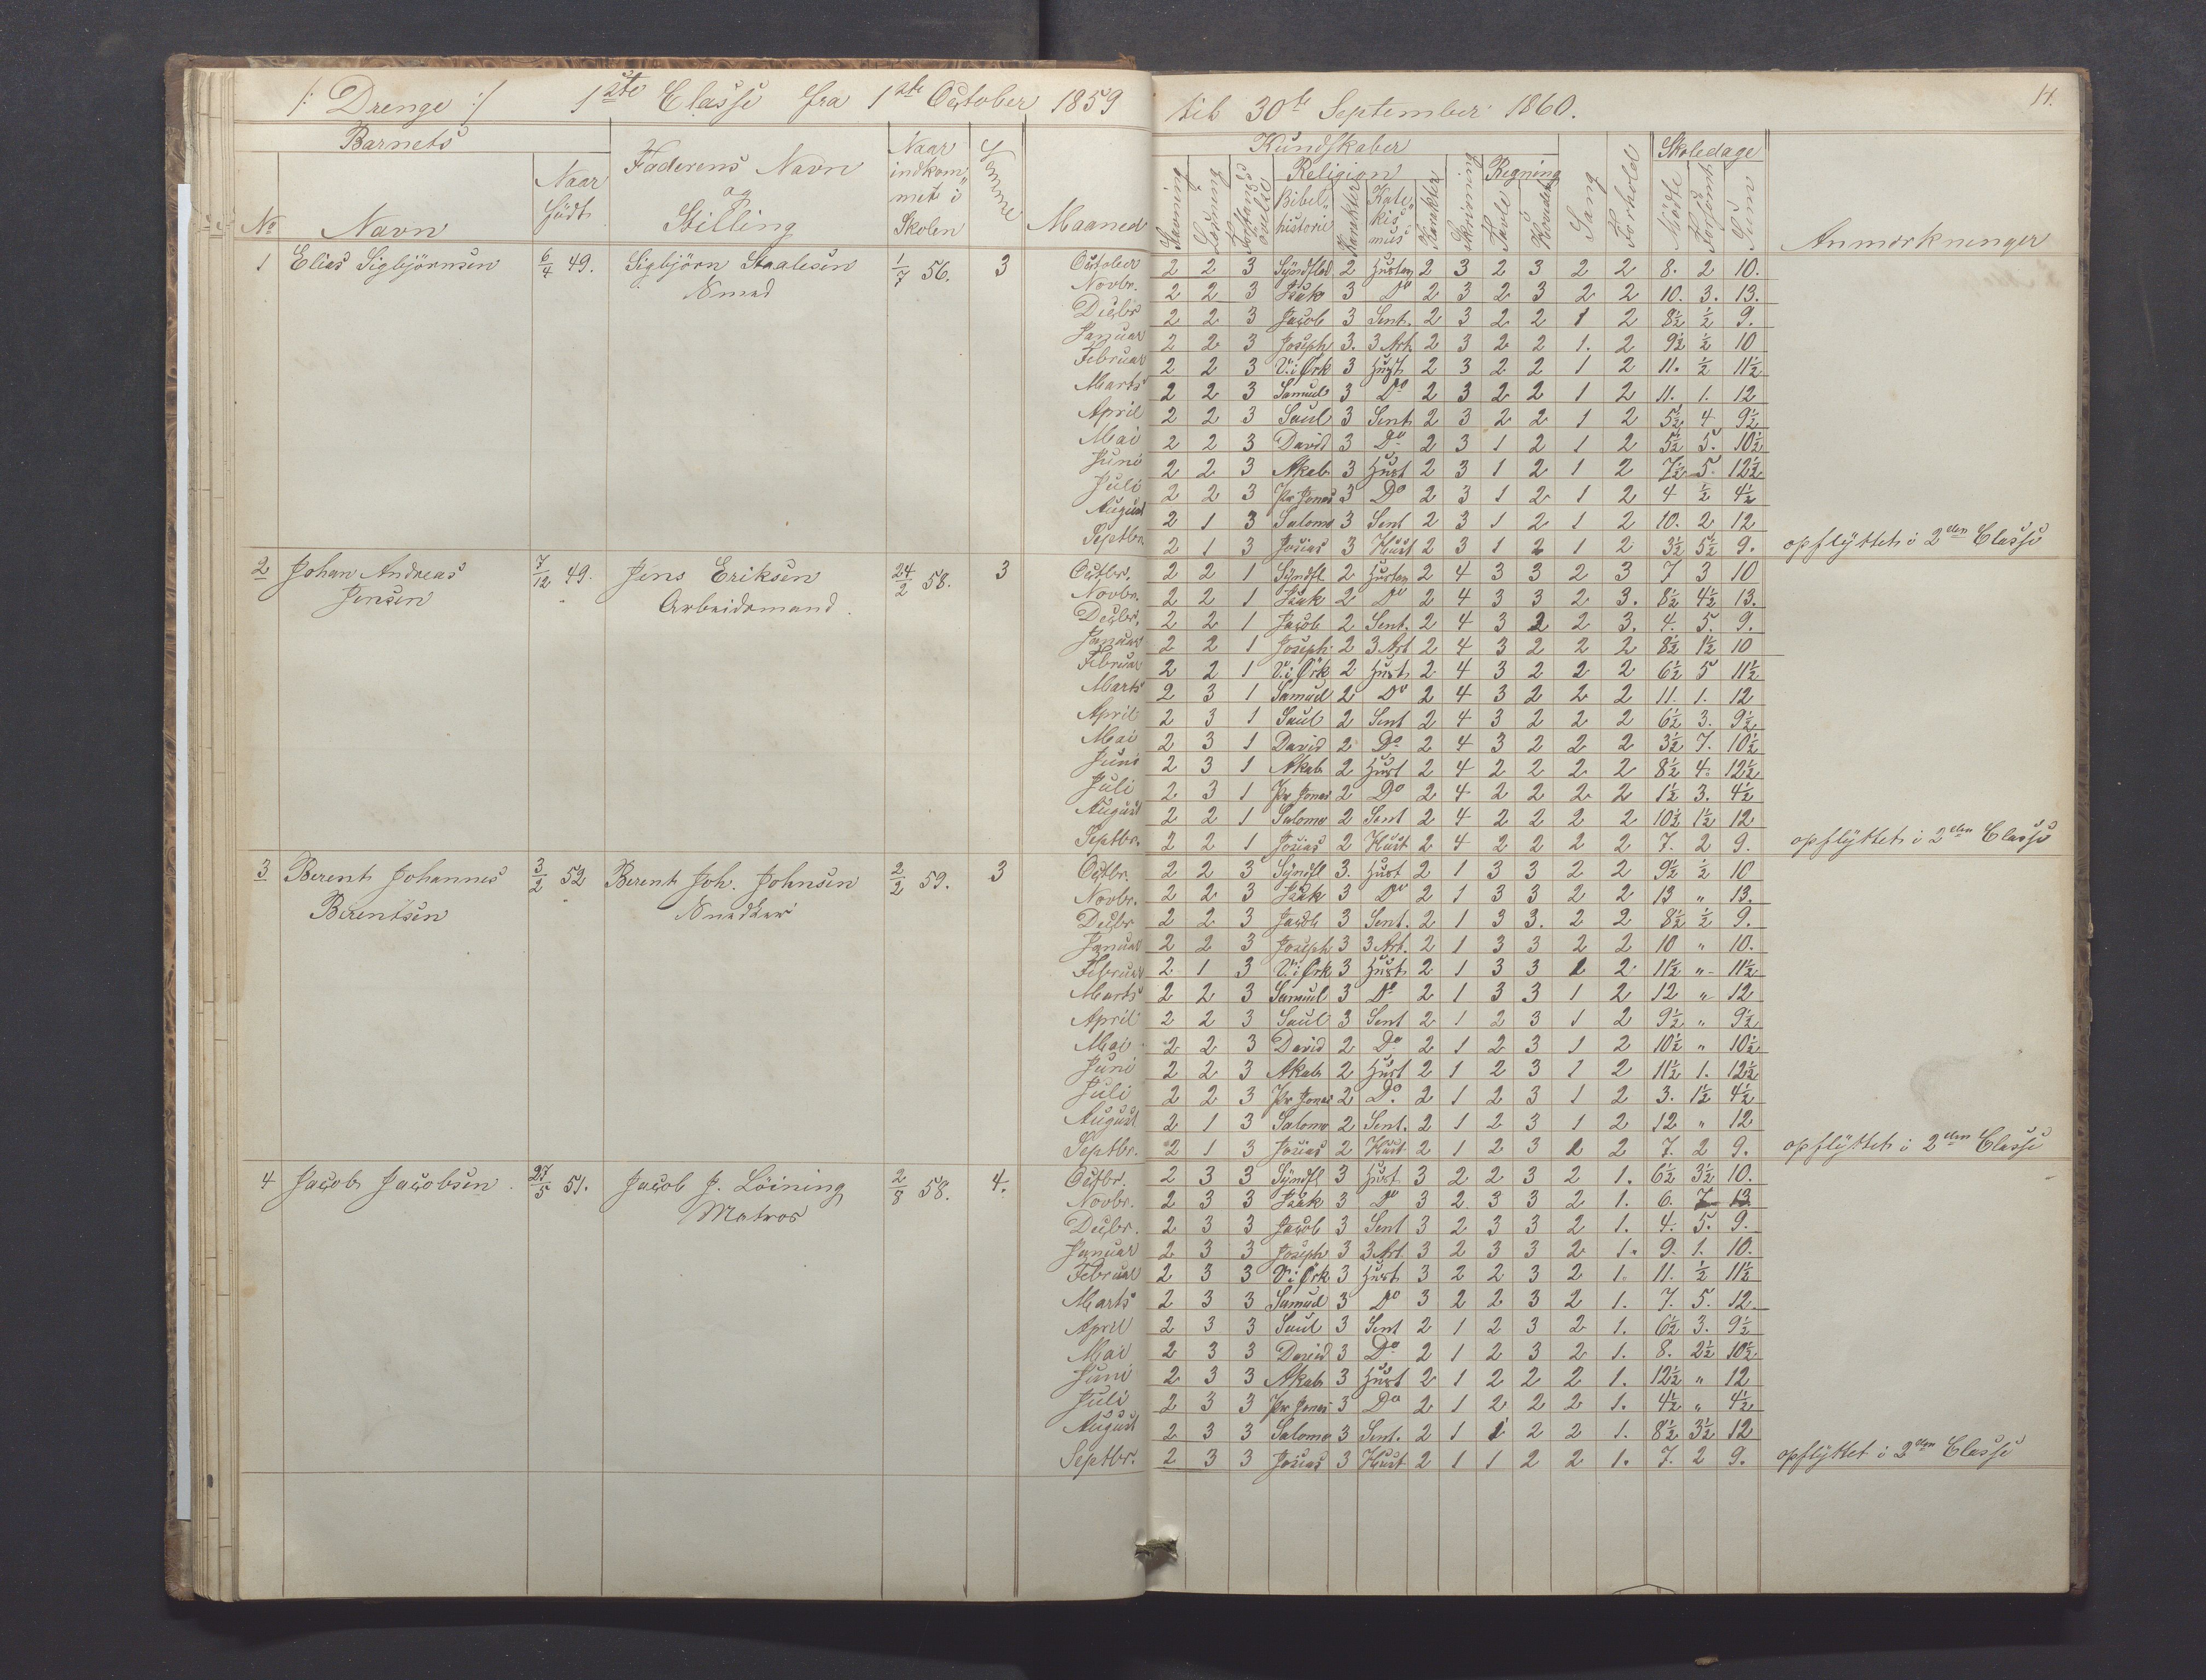 /: Drenge :/ 1ste Classe fra 1ste October 1859 til 30te September 1860.
Barnets
No
Navn
Naar födt
Faderens Navn og Stilling
Naar indkommet i Skolen
Maaned
Kundskaber
Religion
Bibelhistorie
Karakter
Katekismus
Karakter
Skrivning
Regning
Tavle
Hoved
Sang
Forhold
Skoledage
Mödte
Forsömt
Sum
Anmærkninger
1 Elias Sigbjörnsen 6/4 49. Sigbjörn Staalesen 1/7 56. 3
Smed
October 2 2 3 Syndflod 2 Hustav 2 3 2 3 2 2 8. 2 10.
Novbr. 2 2 3 Isak 3 Do 2 3 2 3 2 2 10. 3. 13.
Decbr 2 2 3 Jacob 3 Sent. 2 3 2 2 1 2 8½ ½ 9.
Januar 2 2 3 Joseph 3. 3 Art. 2 3 2 2 1. 2 9½ ½ 10
Februar 2 2 3 V. i Ørk 3 Hust 2 3 2 2 1 2 11. ½ 11½
Marts 2 2 3 Samuel 3 Do 2 3 2 2 1 2 11. 1. 12
April 2 2 3 Saul 3 Sent 2 3 2 2 1 2 5½ 4 9½
Mai 2 2 3 David 3 Do 2 3 1 2 1 2 5½ 5. 10½
Juni 2 2 3 Akab 3 Hust 2 3 1 2 1 2 7½ 5. 12½
Juli 2 2 3 Pr Jonas 3 Do 2 3 1 2 1 2 4 ½ 4½
August 2 1 3 Salomo 3 Sent 2 3 1 2 1 2 10. 2 12
Septbr. 2 1 3 Josias 3 Hust 2 3 1 2 1 2 3½ 5½ 9. opflyttet i 2den Classe
2 Johan Andreas Jensen 7/12 49. Jens Eriksen 24/2 58. 3
Arbeidsmand.
Octbr. 2 2 1 Syndfl. 2 Hustav 2 4 3 3 2 3 7 3 10
Novbr. 2 2 1 Isak 2 Do 2 4 3 3 2 3. 8½ 4½ 13.
Decbr. 2 2 1 Jacob 2 Sent. 2 4 3 2 2 3. 4. 5. 9.
Januar 2 2 1 Joseph 2 3 Art 2 4 3 2 2 2 8½ 1½ 10
Februar 2 2 1 V. i Ørk 2 Hust 2 4 3 2 2 2 6½ 5 11½
Marts 2 3 1 Samuel 2 Do 2 4 3 2 2 2 11. 1. 12
April 2 3 1 Saul 2 Sent 2 4 3 2 2 2 6½ 3. 9½
Mai 2 3 1 David 2 Do 2 4 3 2 2 2 3½ 7. 10½
Juni 2 3 1 Akab 2 Hust 2 4 2 2 2 2 8½ 4. 12½
Juli 2 3 1 Pr Jonas 2 Do 2 4 2 2 2 2 1½ 3. 4½
August 2 2 1 Salomo 2 Sent 2 4 2 2 2 2 10½ 1½ 12
Septbr. 2 2 1 Josias 2 Hust 2 4 2 2 2 2 7. 2 9. opflyttet i 2den Classe
3 Berent Johannes Berentsen 3/2 52 Berent Joh. Johnsen 2/2 59. 3
Snedker
Octbr. 2 2 3 Syndfl 3. Hust 2 1 3 3 2 2 9½ ½ 10
Novbr. 2 2 3 Isak 3 Do 2 1 3 3 2 2 13 " 13.
Decbr 2 2 3 Jacob 3 Sent. 2 1 3 3. 2 2 8½ ½ 9.
Januar 2 2 3 Joseph 3 3 Art. 2 1 3 3 2 2 10 " 10.
Februar 2 1 3 V. i Ørk 3 Hust 2 1 3 3 1 2 11½ " 11½
Marts 2 2 3 Samuel 3 Do 2 1 3 3 1 2 12 " 12
April 2 2 3 Saul 3 Sent 2 1 2 3 1 2 9½ " 9½
Mai 2 2 3 David 2 Do 2 1 2 3 1 2 10½ " 10½
Juni 2 2 3 Akab 2 Hust 2 1 2 3 1 2 11½ 1. 12½
Juli 2 2 3 Pr Jonas 2 Do. 2 1 2 3 1 2 3. 1½ 4½
August 2 1 3 Salomo 2 Sent. 2 1 2 3 1 2 12 " 12
Septbr. 2 1 3 Josias 2 Hust 2 1 2 3 1 2 7. 2 9. opflyttet i 2den Classe
4 Jacob Jacobsen. 27/5 51. Jacob J. Löining 2/8 58. 4.
Matros
Octbr. 2 3 3 Syndfl 3 Hust 3 2 2 3 2 1. 6½ 3½ 10.
Novbr. 2 3 3 Isak 3 Do 3 2 3 3 2 1. 6. 7 13
Decbr. 2 3 3 Jacob 3 Sent 3 2 3 3 2 1. 4. 5. 9.
Januar 2 3 3 Joseph 3 3 Art. 3 2 3 3 2 1. 9. 1. 10.
Februar 2 3 3 V. i Ørk 3 Hust 3 2 2 3 2 1. 11. ½ 11½
Marts 2 3 3 Samuel 3 Do 3 2 2 3 2 1. 7. 5. 12.
April 2 3 3 Saul 3 Sent 2 1 2 3 2 1. 6½ 3. 9½
Mai 2 3 3 David 3 Do 2 1 2 3 2 1. 8. 2½ 10½
Juni 2 3 3 Akab 3 Hust 2 1 2 2 2 1. 12½ " 12
Juli 2 3 3 Pr Jonas 3 Do 2 1 2 2 2 1. 4½ " 4½
August 2 3 3 Salomo 3 Sent. 2 1 1 2 2 1. 8½ 3½ 12
Septbr. 2 3 3 Josias 3 Hust 2 1 1 2 2 1. 7. 2 9. opflyttet i 2den Classe